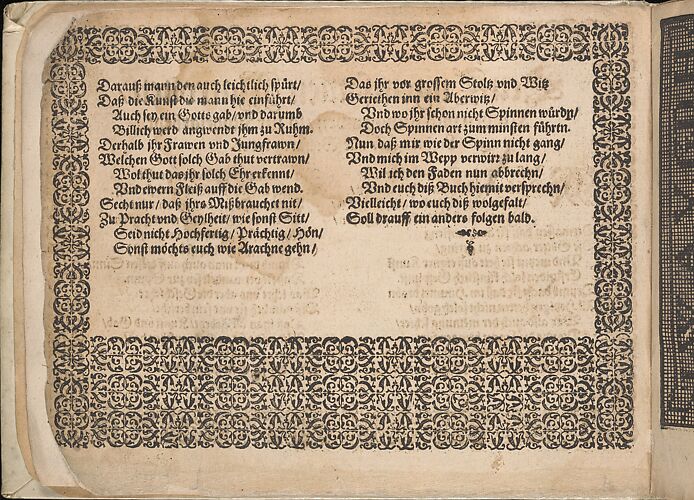 Darauß mann den auch leichtlich spürt/
Daß die Kunst die mann hie einführt/
Auch sey ein Gotts gab/ vnd darumb
Billich werd angwendt jhm zu Ruhm.
Derhalb jhr Frawen vnd Jungfrawn/
Welchen Gott solch Gab thut vertrawn/
Wolthut das jhr solch Ehr erkennt/
Vnd ewern Fleiß auff die Gab wend.
Secht nur/ daß jhrs Mißbrauchet nit/
Zu Pracht vnd Geylheit/ wie sonst Sitt/
Seid nicht Hochfertig/ Prächtig/ Hön/
Sonst möchts euch wie Arachne gehn/
Das jhr vor grossem Stoltz vnd Witz
Geriethen inn ein Aberwitz/
Vnd wo jhr schon nicht Spinnen würdn/
Doch Spinnen art zum minsten führtn.
Nun daß mir wie der Spinn nicht gang/
Vnd mich im Wepp verwirr zu lang/
Wil ich den Faden nun abbrechn/
Vnd euch diß Buch hiemit versprechn/
Vielleicht/ wo euch diß wolgefalt/
Soll drauff ein anders folgen bald.